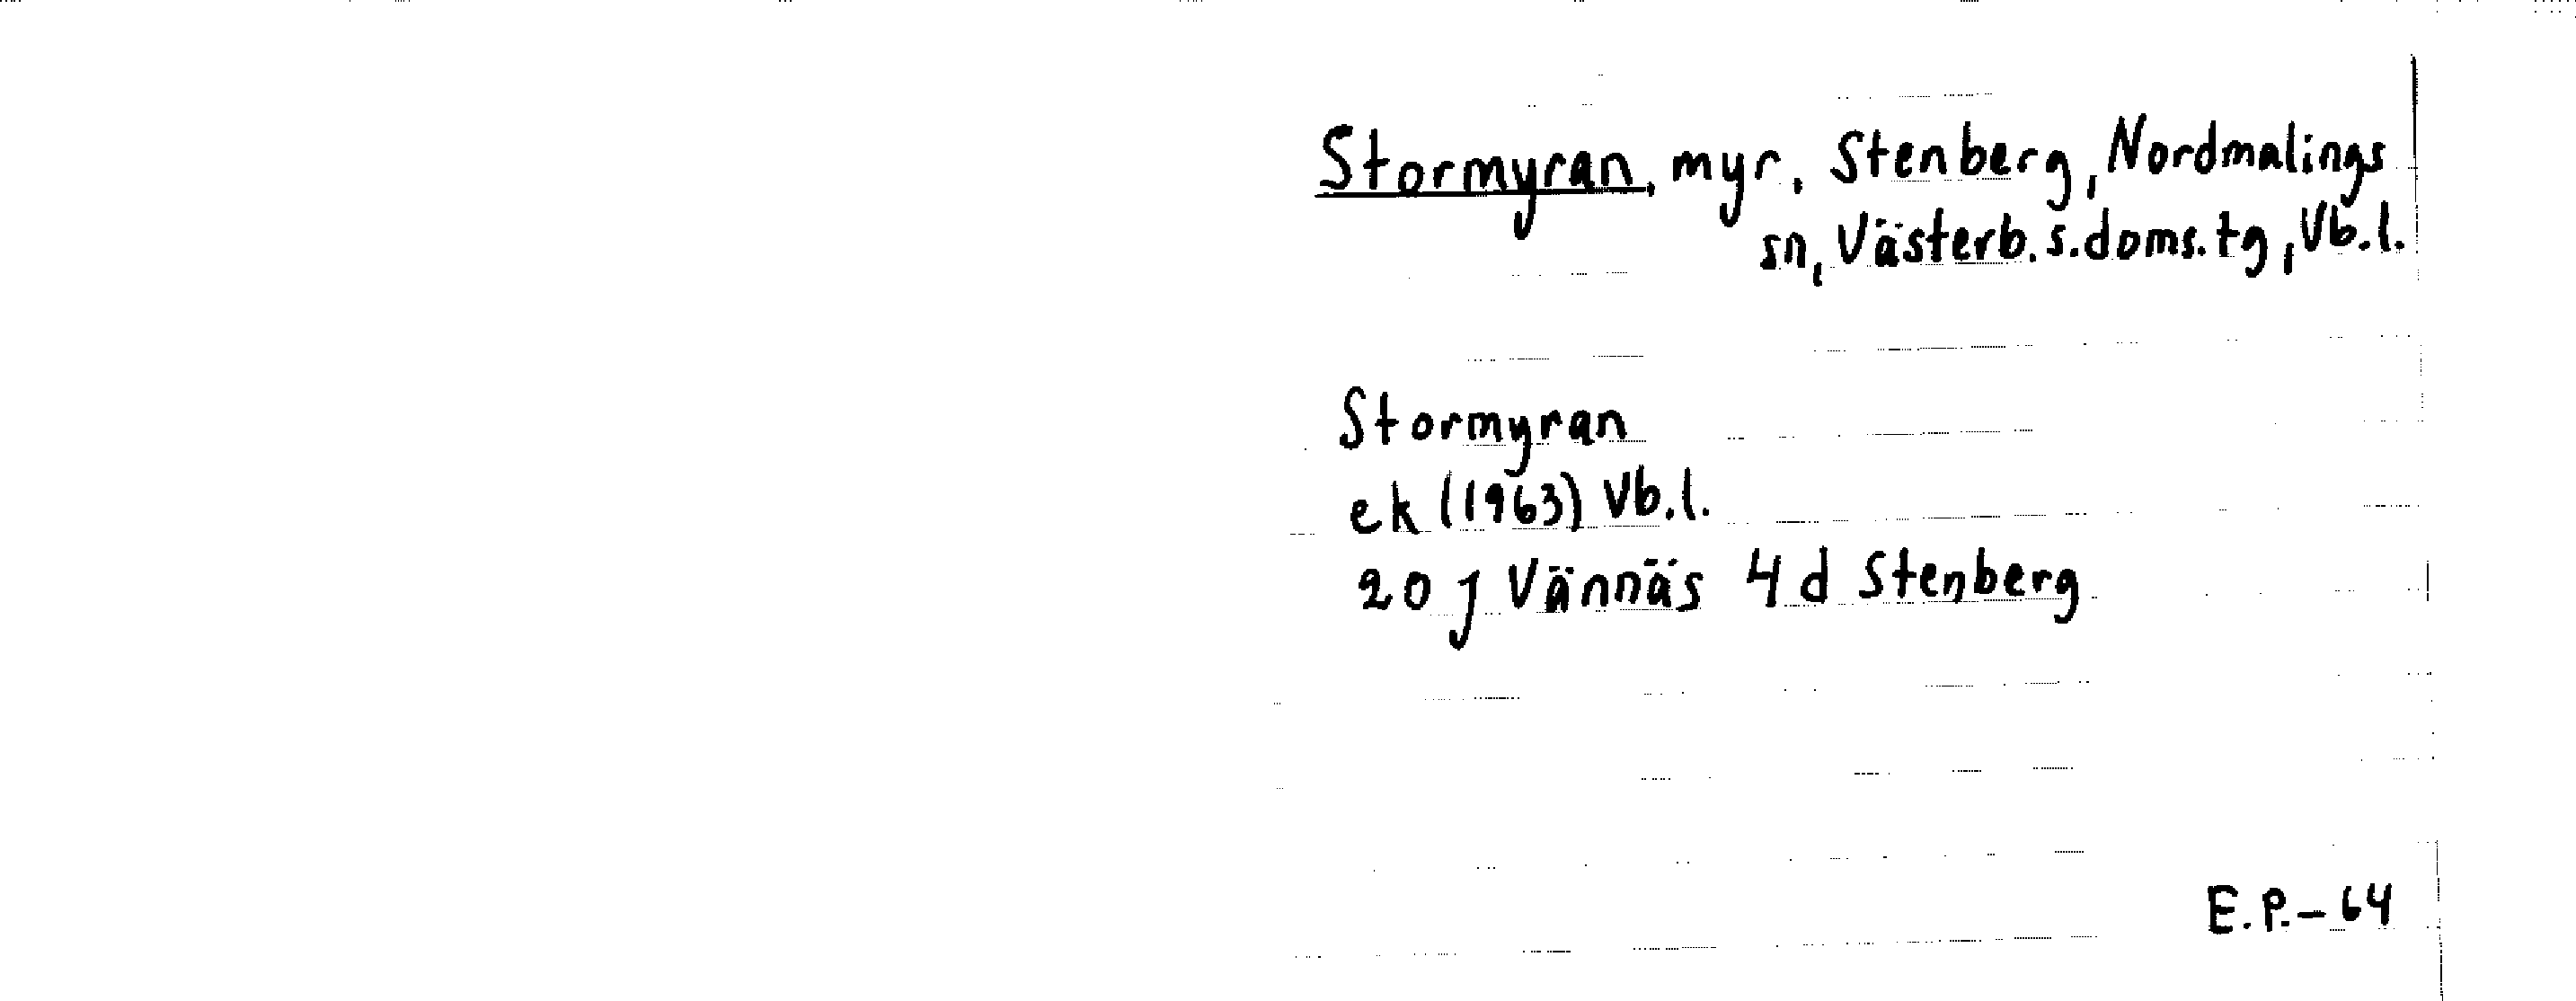 Stormyran, myr, Stenberg, Nordmalings
sn, Västerb. s. doms. tg, Vb. l.
Stormyran
ek (1963) Vb. l.
20 J Vännäs 4 d Stenberg
E. P. - 64